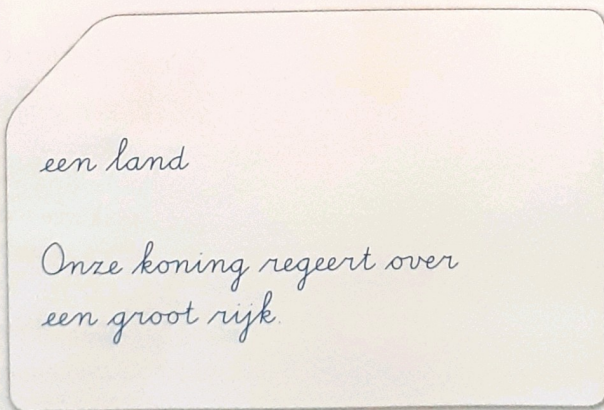 een land
Onze koning regeert over
een groot rijk.